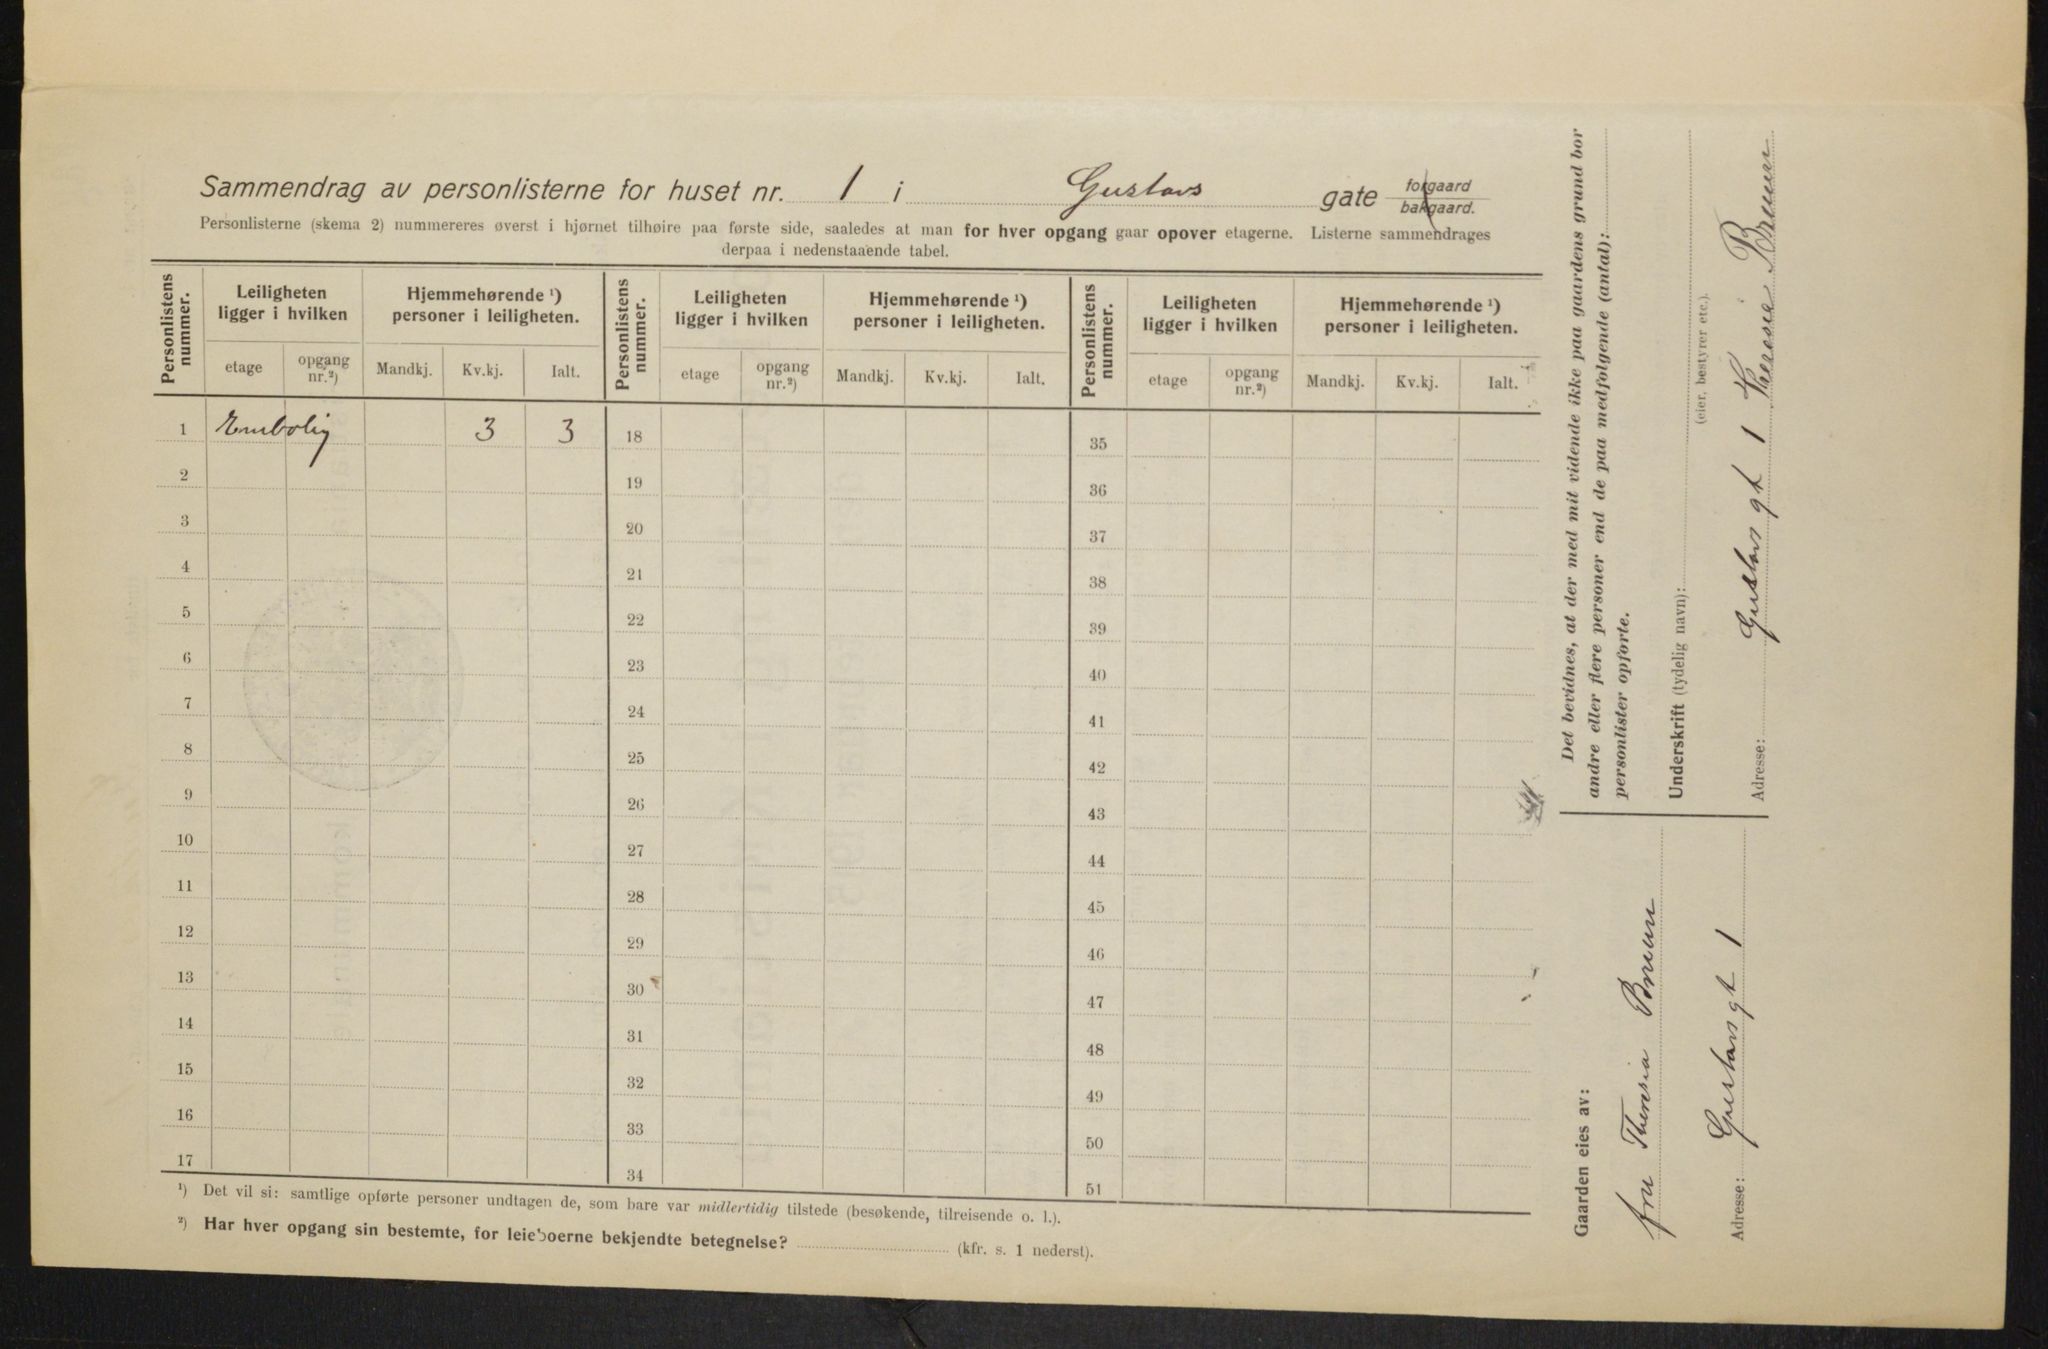 Sammendrag av personlisterne for huset nr. 1 i Gustavs gate forgaard bakgaard.
Personlisterne (skema 2) nummereres øverst i hjørnet tilhøire paa første side, saaledes at man for hver opgang gaar opover etagerne. Listerne sammendrages
derpaa i nedenstaaende tabel.
Personlistens nummer. Leiligheten ligger i hvilken Hjemmehørende ¹) personer i leiligheten. Personlistens nummer. Leiligheten ligger i hvilken Hjemmehørende ¹) personer i leiligheten. Personlistens nummer. Leiligheten ligger i hvilken Hjemmehørende ¹) personer i leiligheten.
etage opgang nr.²) Mandkj. Kv.kj. Ialt. etage opgang nr.²) Mandkj. Kv.kj. Ialt. etage opgang nr.²) Mandkj. Kv.kj. Ialt.
1 Enebolig 3 3 18 35
2 19 36
3 20 37
4 21 38
5 22 39
6 23 40
7 24 41
8 25 42
9 26 43
10 27 44
11 28 45
12 29 46
13 30 47
14 31 48
15 32 49
16 33 50
17 34 51
¹) Det vil si: samtlige opførte personer undtagen de, som bare var midlertidig tilstede (besøkende, tilreisende o. l.).
²) Har hver opgang sin bestemte, for leieboerne bekjendte betegnelse? (kfr. s. 1 nederst).
Det bevidnes, at der med mit vidende ikke paa gaardens grund bor
andre eller flere personer end de paa medfølgende (antal):
personlister opførte.
Underskrift (tydelig navn):
(eier, bestyrer etc.).
Theresia Bruun
Adresse: Gustavs gt 1
Gaarden eies av:
fru Theresia Bruun
Adresse: Gustavsgt 1